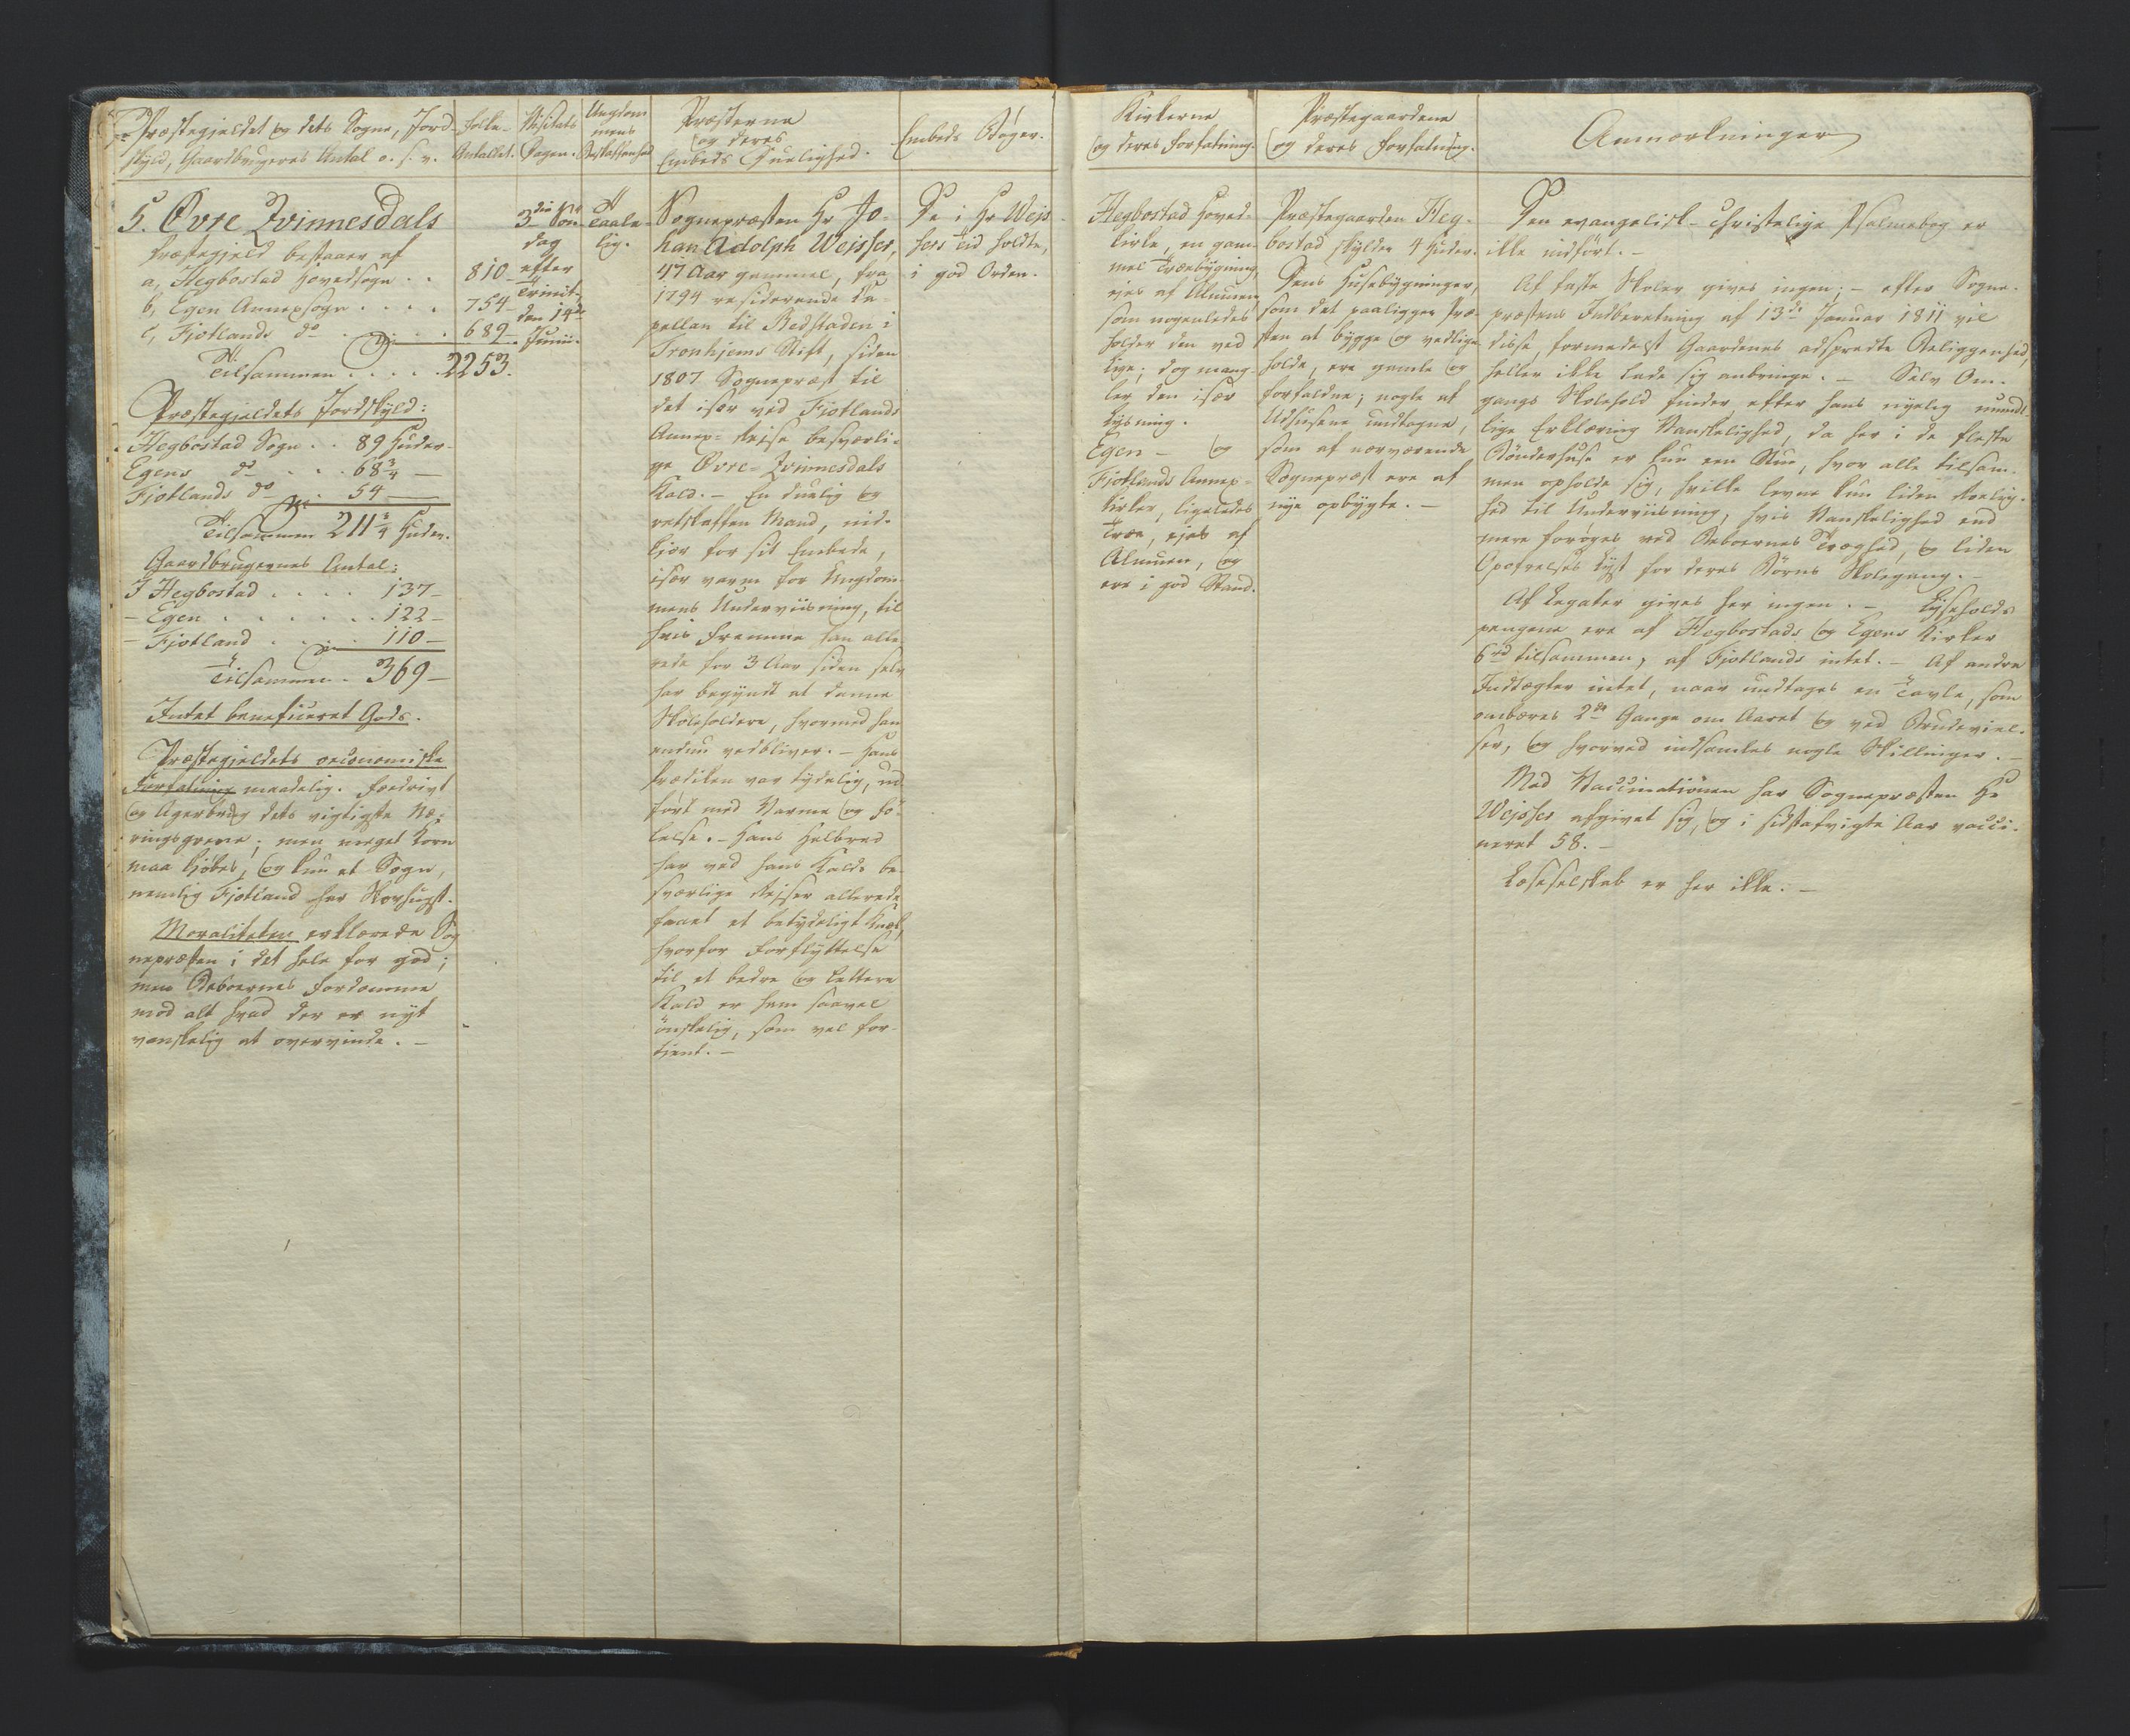 Præstegjeldet og dets Sogne, Jord-
skyld, Gaardbrugernes Antal o. s. v.
Folke-
Antallet.
Visitats
Dagen.
Ungdom
mens
Beskaffenhed
Præsterne
og deres
Embeds Duelighed.
Embeds Bøger.
5. Øvre Qvinnesdals
Præstegjeld bestaaer af
a, Hegbostad Hovedsogn . . 810 -
b, Egen Annexsogn . . . . 754 -
c, Fjotlands do . . . . 689 -
Tilsammen . . . . 2253.
Præstegjeldets Jordskyld:
Hegbostad Sogn . . 89 Huder -
Egens do . . . 68 3/4 —
Fjotlands do . . 54 —
Tilsammen 211 3/4 Huder.
Gaardbrugernes Antal:
I Hegbostad . . . . 137 -
- Egen . . . . . . 122 -
- Fjotland . . . . 110 -
Tilsammen . 369 -
Intet beneficeret Gods.
Præstegjeldets oeconomiske
Forfatning maadelig. Fædrivt
og Agerbrug dets vigtigste Næ-
ringsgrene; men meget Korn
maa kjøbes, og kun et Sogn,
nemlig Fjotland har Skovhugst.
Moraliteten erklærede Sog
nepræsten i det hele for god;
men Beboernes Fordomme
mod alt hvad der er nyt
vanskelig at overvinde. -
3die Søn-
dag
efter
Trinit.
den 14de
Junii.
Taale-
lig.
Sognepræsten Hr Jo-
han Adolph Wejsser,
47 Aar gammel, fra
1794 residerende Ca-
pellan til Bedstaden i
Tronhjems Stift, siden
1807 Sognepræst til
det især ved Fjotlands
Annex-Rejse besværli-
ge Øvre-Qvinnesdals
Kald. - En duelig og
retskaffen Mand, nid-
kjær for sit Embede,
især varm for Ungdom-
mens Underviisning, til
hvis Fremme han alle-
rede for 3 Aar siden selv
har begyndt at danne
Skoleholdere, hvormed han
endnu vedbliver. - Hans
Prædiken var tydelig, ud
ført med Varme og Fø-
lelse. - Hans Helbred
har ved hans Kalds be-
sværlige Rejser allerede
faaet et betydeligt Knæk,
hvorfor Forflyttelse
til et bedre og lettere
Kald er ham saavel
ønskelig, som vel for-
tjent. -
De i Hr Wejs-
sers Tid holdte,
i god Orden.
Kirkerne
og deres Forfatning.
Præstegaardene
og deres Forfatning.
Anmærkninger
Hegbostad Hoved-
kirke, en gam-
mel Træebygning,
ejes af Almuen
som nogenledes
holder den ved
lige; dog mang-
ler den især
Lysning.
Egen - og
Fjotlands Annex-
kirker, ligeledes
Træe, ejes af
Almuen, og
ere i god Stand.
Præstegaarden Heg-
bostad skylder 4 Huder.
Dens Husebygninger,
som det paaligger Præ-
sten at bygge og vedlige-
holde, ere gamle og
forfaldne; nogle af
Udhusene undtagne,
som af nærværende
Sognepræst ere af
nye opbygte. -
Den evangelisk-christelige Psalmebog er
ikke indført. -
Af faste Skoler gives ingen; - efter Sogne-
præstens Indberetning af 13de Januar 1811 vil
disse, formedelst Gaardenes adspredte Beliggenhed,
heller ikke lade sig anbringe. - Selv Om-
gangs Skolehold finder efter hans nyelig mundt
lige Erklæring Vanskelighed, da her i de fleste
Bønderhuse er kun een Stue, hvor alle tilsam-
men opholde sig, hvilke levne kun liden Roelig-
hed til Underviisning, hvis Vanskelighed end
mere forøges ved Beboernes Træghed, og liden
Opofrelses Lyst for deres Børns Skolegang. -
Af Legater gives her ingen. - Lyseholds
pengene ere af Hegbostads og Egens Kirker
6 rd tilsammen, af Fjotlands intet. - Af andre
Indtægter intet, naar undtages en Tavle, som
ombæres 2de Gange om Aaret og ved Brudeviel-
ser, og hvorved indsamles nogle Skillinger. -
Med Vaccinationen har Sognepræsten Hr
Wejsser afgivet sig, og i sidstafvigte Aar vacci-
neret 58. -
Læseselskab er her ikke. -